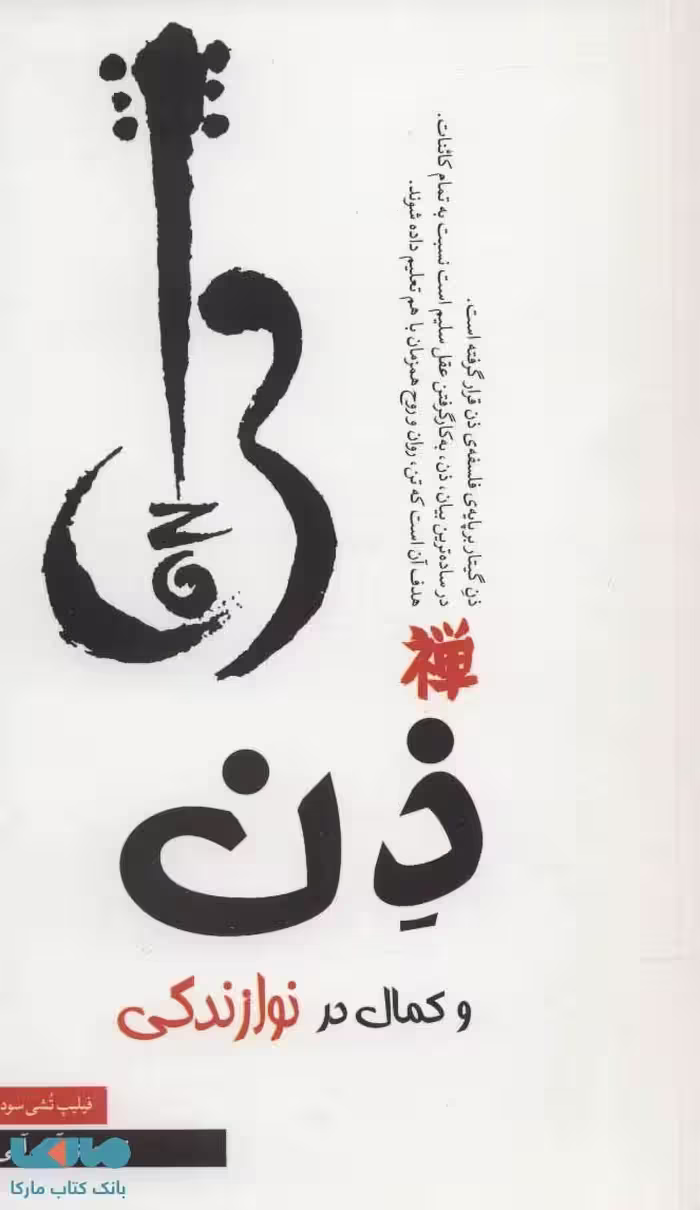 ذنِ گیتار بر پایه‌ی فلسفه‌ی ذن قرار گرفته است.
در ساده‌ترین بیان، ذن، به‌کارگرفتن عقل سلیم است نسبت به تمام کائنات.
هدف آن است که تن، روان و روح همزمان با هم تعلیم داده شوند.
禅
ذِن
و کمال در نوازندگی
فیلیپ تُشی سود
مارکا
بانک کتاب مارکا